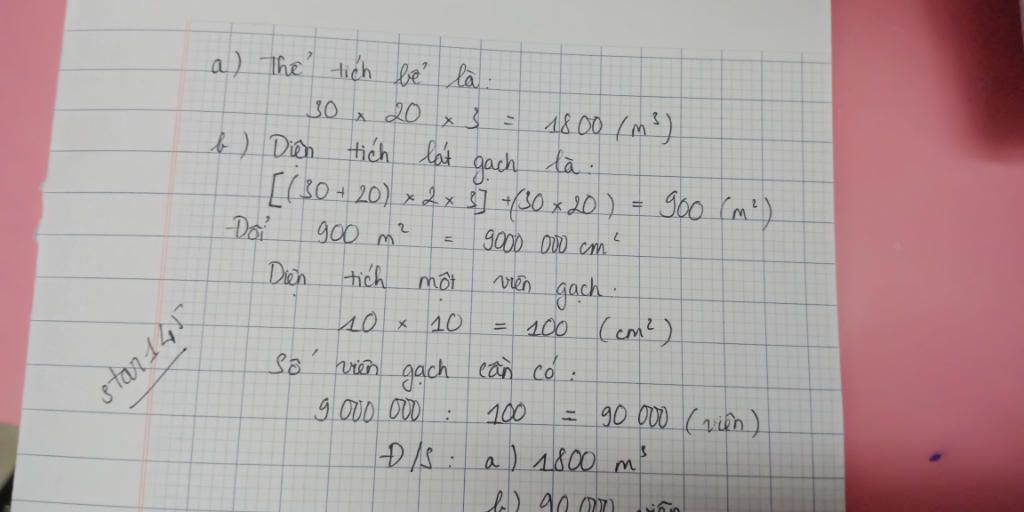 a) Thể tích bể là:
30 x 20 x 3 = 1800 (m³)
b) Diện tích lát gạch là:
[(30 + 20) x 2 x 3] + (30 x 20) = 900 (m²)
Đổi 900 m² = 9000 000 cm²
Diện tích một viên gạch.
10 x 10 = 100 (cm²)
star145
Số viên gạch cần có:
9 000 000 : 100 = 90 000 (viên)
Đ/S: a) 1800 m³
b) 90 000 viên